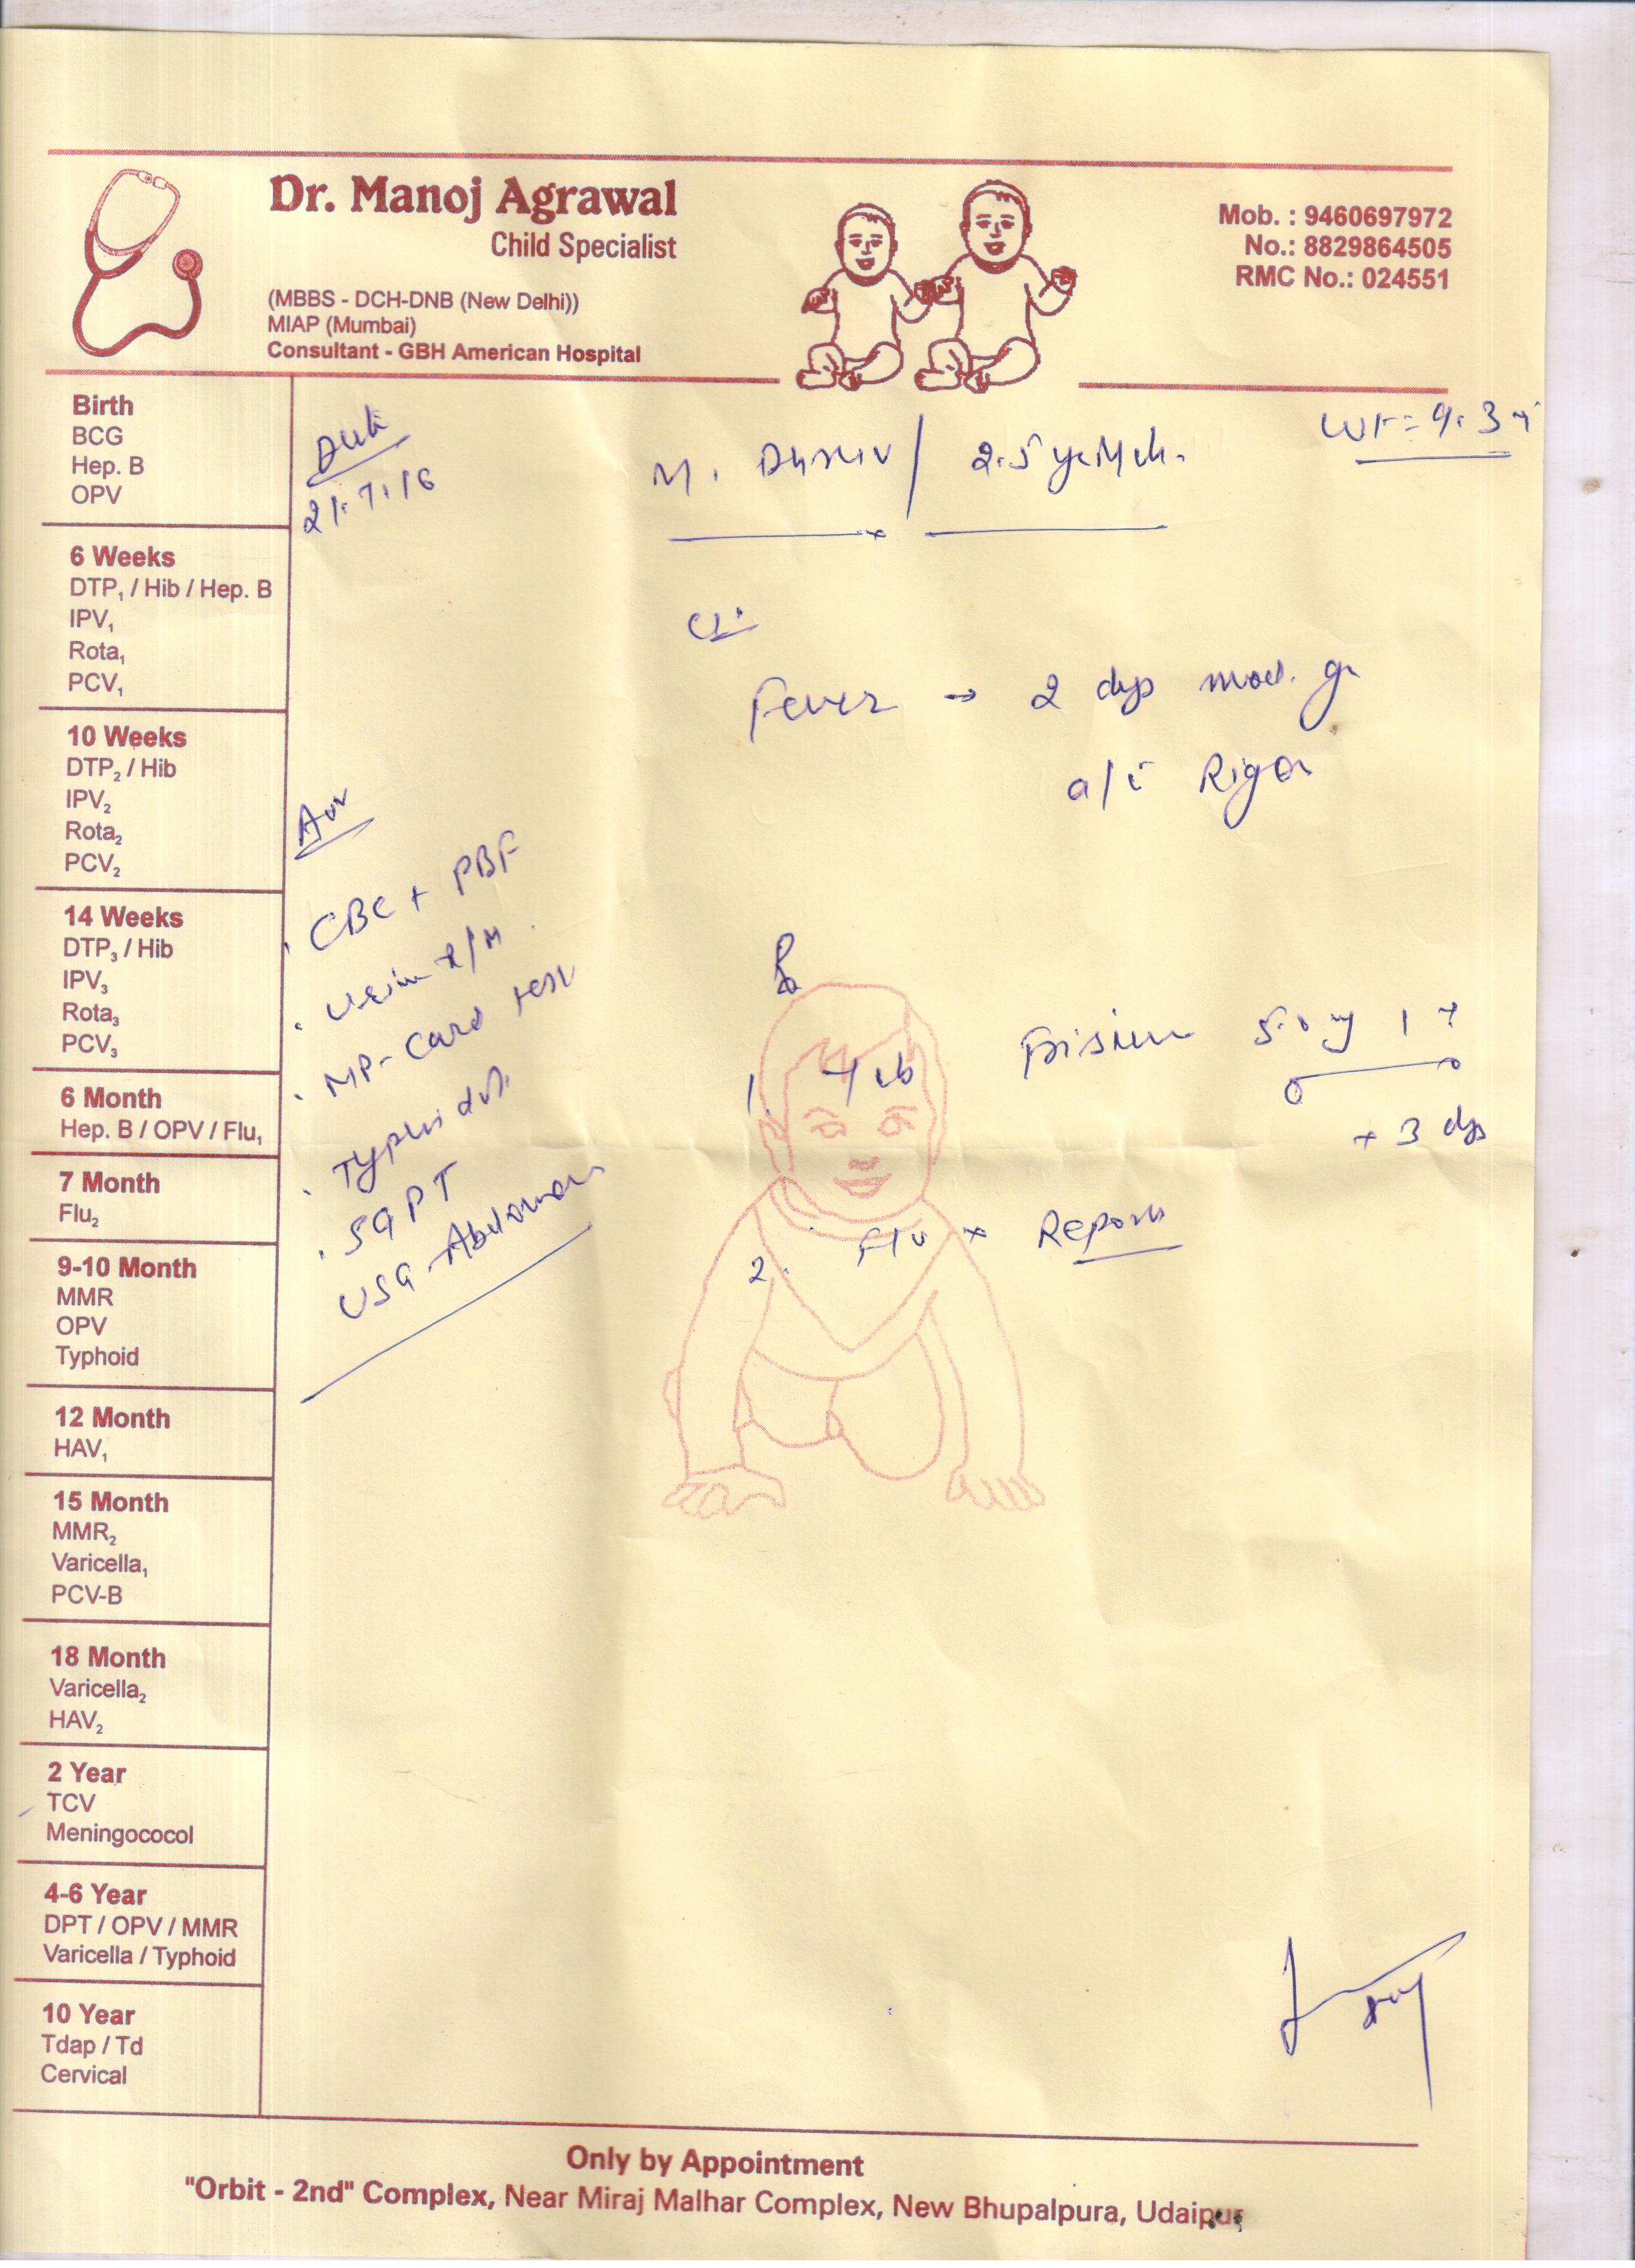 Dr. Manoj Agrawal
Child Specialist
(MBBS - DCH-DNB (New Delhi))
MIAP (Mumbai)
Consultant - GBH American Hospital
Mob. : 9460697972
No.: 8829864505
RMC No.: 024551
Birth
BCG
Hep. B
OPV
6 Weeks
DTP₁ / Hib / Hep. B
IPV₁
Rota₁
PCV₁
10 Weeks
DTP₂ / Hib
IPV₂
Rota₂
PCV₂
14 Weeks
DTP₃ / Hib
IPV₃
Rota₃
PCV₃
6 Month
Hep. B / OPV / Flu₁
7 Month
Flu₂
9-10 Month
MMR
OPV
Typhoid
12 Month
HAV₁
15 Month
MMR₂
Varicella₁
PCV-B
18 Month
Varicella₂
HAV₂
2 Year
TCV
Meningococol
4-6 Year
DPT / OPV / MMR
Varicella / Typhoid
10 Year
Tdap / Td
Cervical
21.7.16
M. / 2.5 yr/Mch.
Wt = 9.3
Fever → 2 dys mod. gr
a/c Rigor
Adv
. CBC + PBF
. Urine R/M
. MP- Card test
. Typhi dot
. SGPT
USG - Abdomen
1. Tab Frisium 5.0 mg 1
+ 3 dys
2. F/U Reports
Only by Appointment
"Orbit - 2nd" Complex, Near Miraj Malhar Complex, New Bhupalpura, Udaipur